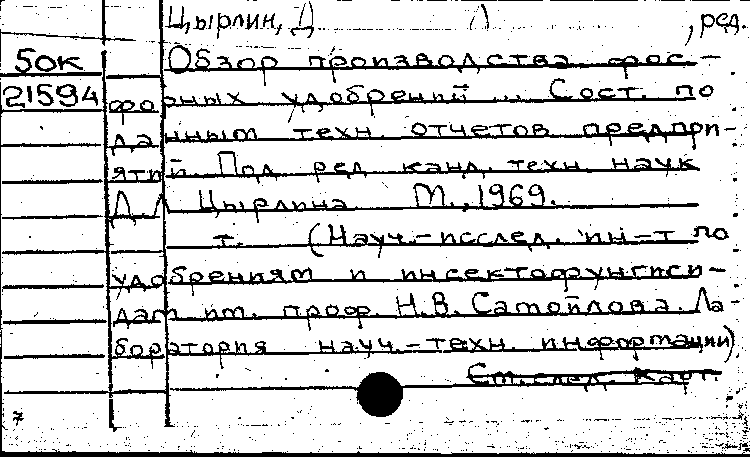 Цырлин, Д. Л., ред.
5ок Обзор производства фос-
21594 форных удобрений ... Сост. по
данным техн. отчетов предпри-
ятий. Под ред. канд. техн. наук
Д.Л. Цырлина. М., 1969.
т. (Науч.-исслед. ин-т по
удобрениям и инсектофунгиси-
дам им. проф. Н.В. Самойлова. Ла-
боратория науч.-техн. информации)
См. след. карт.
7